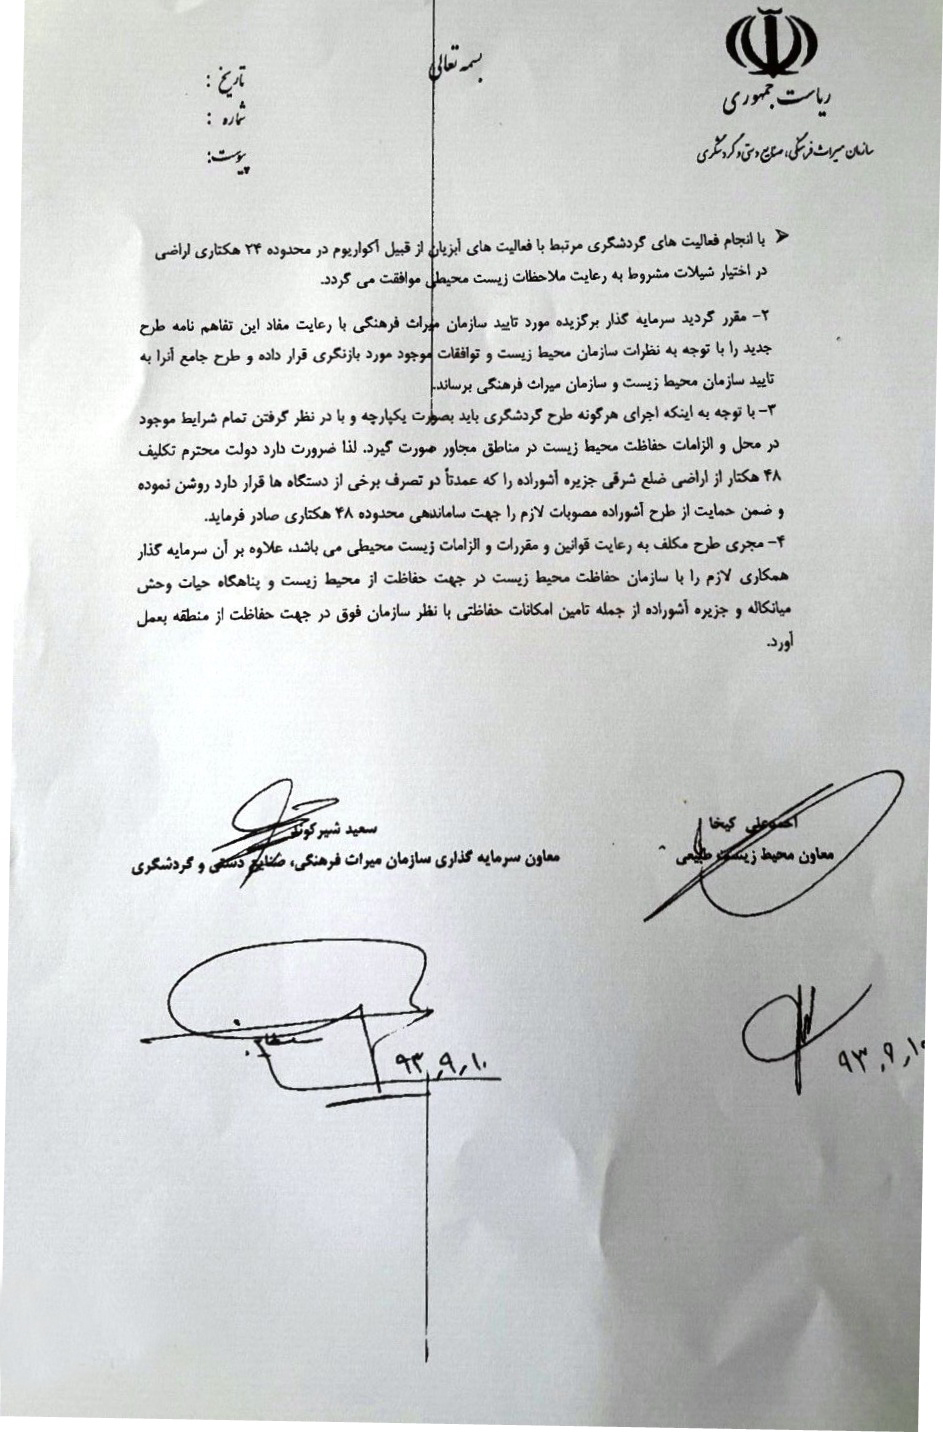 بسمه تعالی
ریاست جمهوری
سازمان میراث فرهنگی، صنایع دستی و گردشگری
تاریخ :
شماره :
پیوست:
➢ با انجام فعالیت های گردشگری مرتبط با فعالیت های آبزیان از قبیل آکواریوم در محدوده ۲۴ هکتاری اراضی
در اختیار شیلات مشروط به رعایت ملاحظات زیست محیطی موافقت می گردد.
۲- مقرر گردید سرمایه گذار برگزیده مورد تایید سازمان میراث فرهنگی با رعایت مفاد این تفاهم نامه طرح
جدید را با توجه به نظرات سازمان محیط زیست و توافقات موجود مورد بازنگری قرار داده و طرح جامع آنرا به
تایید سازمان محیط زیست و سازمان میراث فرهنگی برساند.
۳- با توجه به اینکه اجرای هرگونه طرح گردشگری باید بصورت یکپارچه و با در نظر گرفتن تمام شرایط موجود
در محل و الزامات حفاظت محیط زیست در مناطق مجاور صورت گیرد. لذا ضرورت دارد دولت محترم تکلیف
۴۸ هکتار از اراضی ضلع شرقی جزیره آشوراده را که عمدتاً در تصرف برخی از دستگاه ها قرار دارد روشن نموده
و ضمن حمایت از طرح آشوراده مصوبات لازم را جهت ساماندهی محدوده ۴۸ هکتاری صادر فرماید.
۴- مجری طرح مکلف به رعایت قوانین و مقررات و الزامات زیست محیطی می باشد، علاوه بر آن سرمایه گذار
همکاری لازم را با سازمان حفاظت محیط زیست در جهت حفاظت از محیط زیست و پناهگاه حیات وحش
میانکاله و جزیره آشوراده از جمله تامین امکانات حفاظتی با نظر سازمان فوق در جهت حفاظت از منطقه بعمل
آورد.
احمدعلی کیخا
معاون محیط زیست طبیعی
سعید شیرکوند
معاون سرمایه گذاری سازمان میراث فرهنگی، صنایع دستی و گردشگری
۹۳,۹,۱۰
۹۳,۹,۱۰